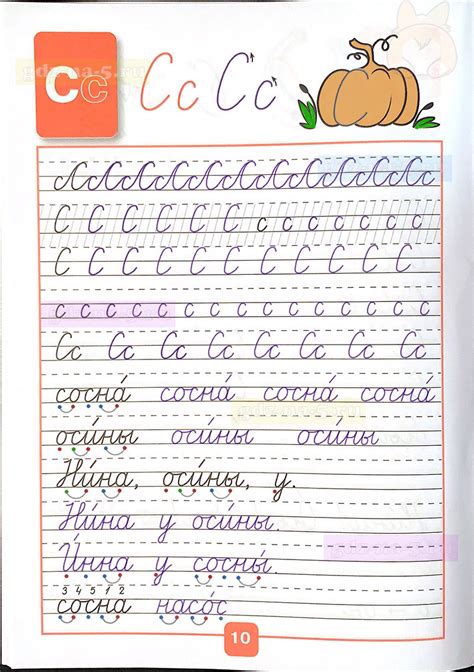 Сс Сс Сс
СсСсСсСсСсСсСсСсСсСсСс
С С С С С С с с с с с с с с
С С С С С С С С С С С
с с с с с с с с с с с с с с с
Сс Сс Сс Сс Сс Сс Сс Сс
сосна́ сосна́ сосна́ сосна́
оси́ны оси́ны оси́ны
Ни́на, оси́ны, у.
Ни́на у оси́ны.
И́нна у сосны́.
3 4 5 1 2
сосна насо́с
10